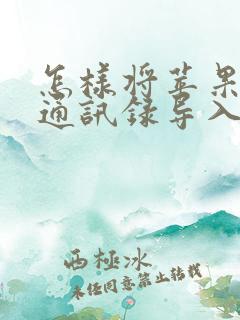 怎样将苹果
通訊録导入
西極冰
未经同意禁止转载